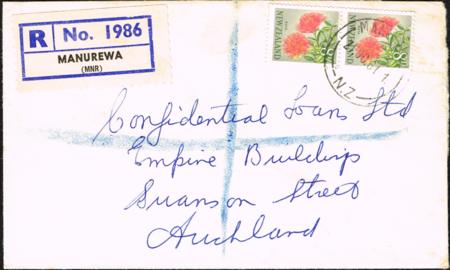 R No. 1986
MANUREWA
(MNR)
NEW ZEALAND
NEW ZEALAND
8d
N.Z.
Confidential Loans Ltd
Empire Buildings
Swanson Street
Auckland